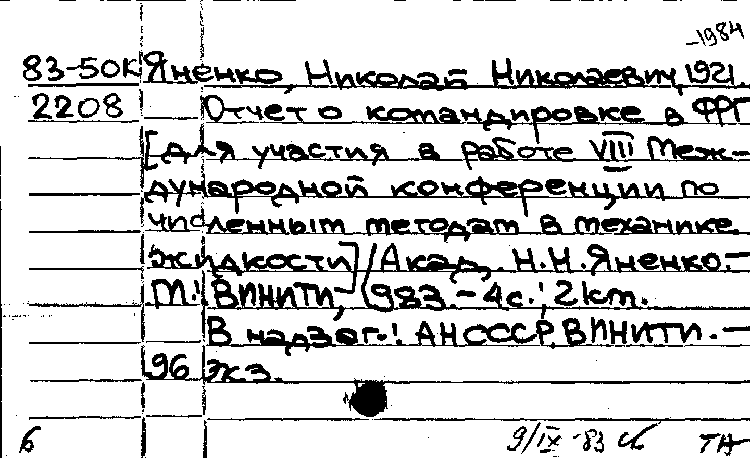 -1984
83-50К Яненко, Николай Николаевич, 1921.
2208 Отчет о командировке в ФРГ
[для участия в работе VIII Меж-
дународной конференции по
численным методам в механике
жидкости] / Акад. Н.Н.Яненко.-
М.: ВИНИТИ, 1983.-4с.; 21 см.
В надзаг.: АН СССР, ВИНИТИ. -
96 экз.
6 9/IX-83 ТА